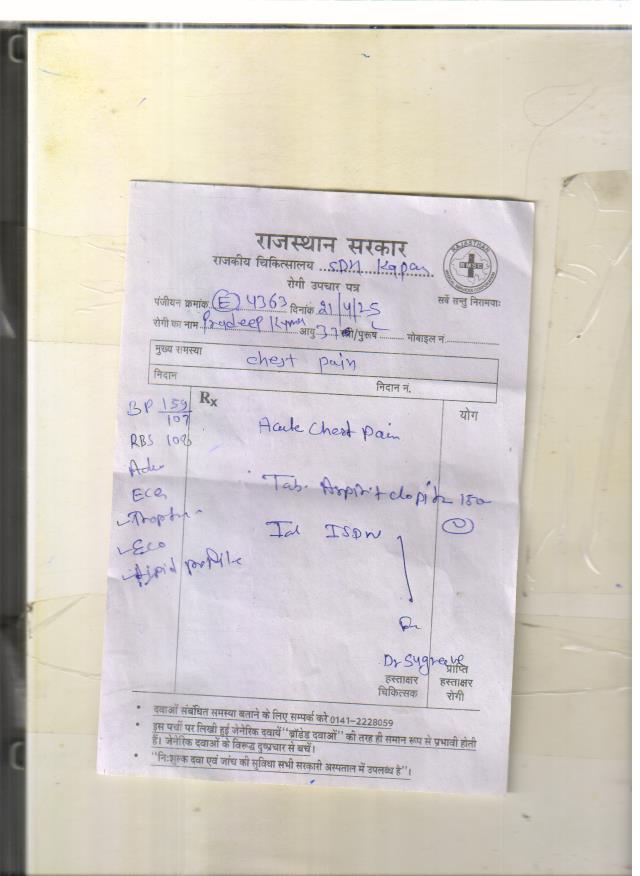 राजस्थान सरकार
राजकीय चिकित्सालय SDH Kapan
रोगी उपचार पत्र
पंजीयन क्रमांक (E) 4363 दिनांक 21/4/25
सर्वे सन्तु निरामयाः
रोगी का नाम Pradeep Kumar आयु 37 स्त्री/पुरूष मोबाइल नं.
मुख्य समस्या chest pain
निदान निदान नं.
Rx योग
BP 159/107
RBS
Acute Chest Pain
Adv
ECG
Tab. 150
ISDN
Eco
lipid profile
Dr Sugreeve
हस्ताक्षर चिकित्सक
प्राप्ति हस्ताक्षर रोगी
• दवाओं संबंधित समस्या बताने के लिए सम्पर्क करे 0141-2228059
• इस पर्ची पर लिखी हुई जेनेरिक दवायें "ब्रांडेड दवाओं" की तरह ही समान रूप से प्रभावी होती
हैं। जेनेरिक दवाओं के विरूद्ध दुष्प्रचार से बचें।
• "निःशुल्क दवा एवं जांच की सुविधा सभी सरकारी अस्पताल में उपलब्ध है"।